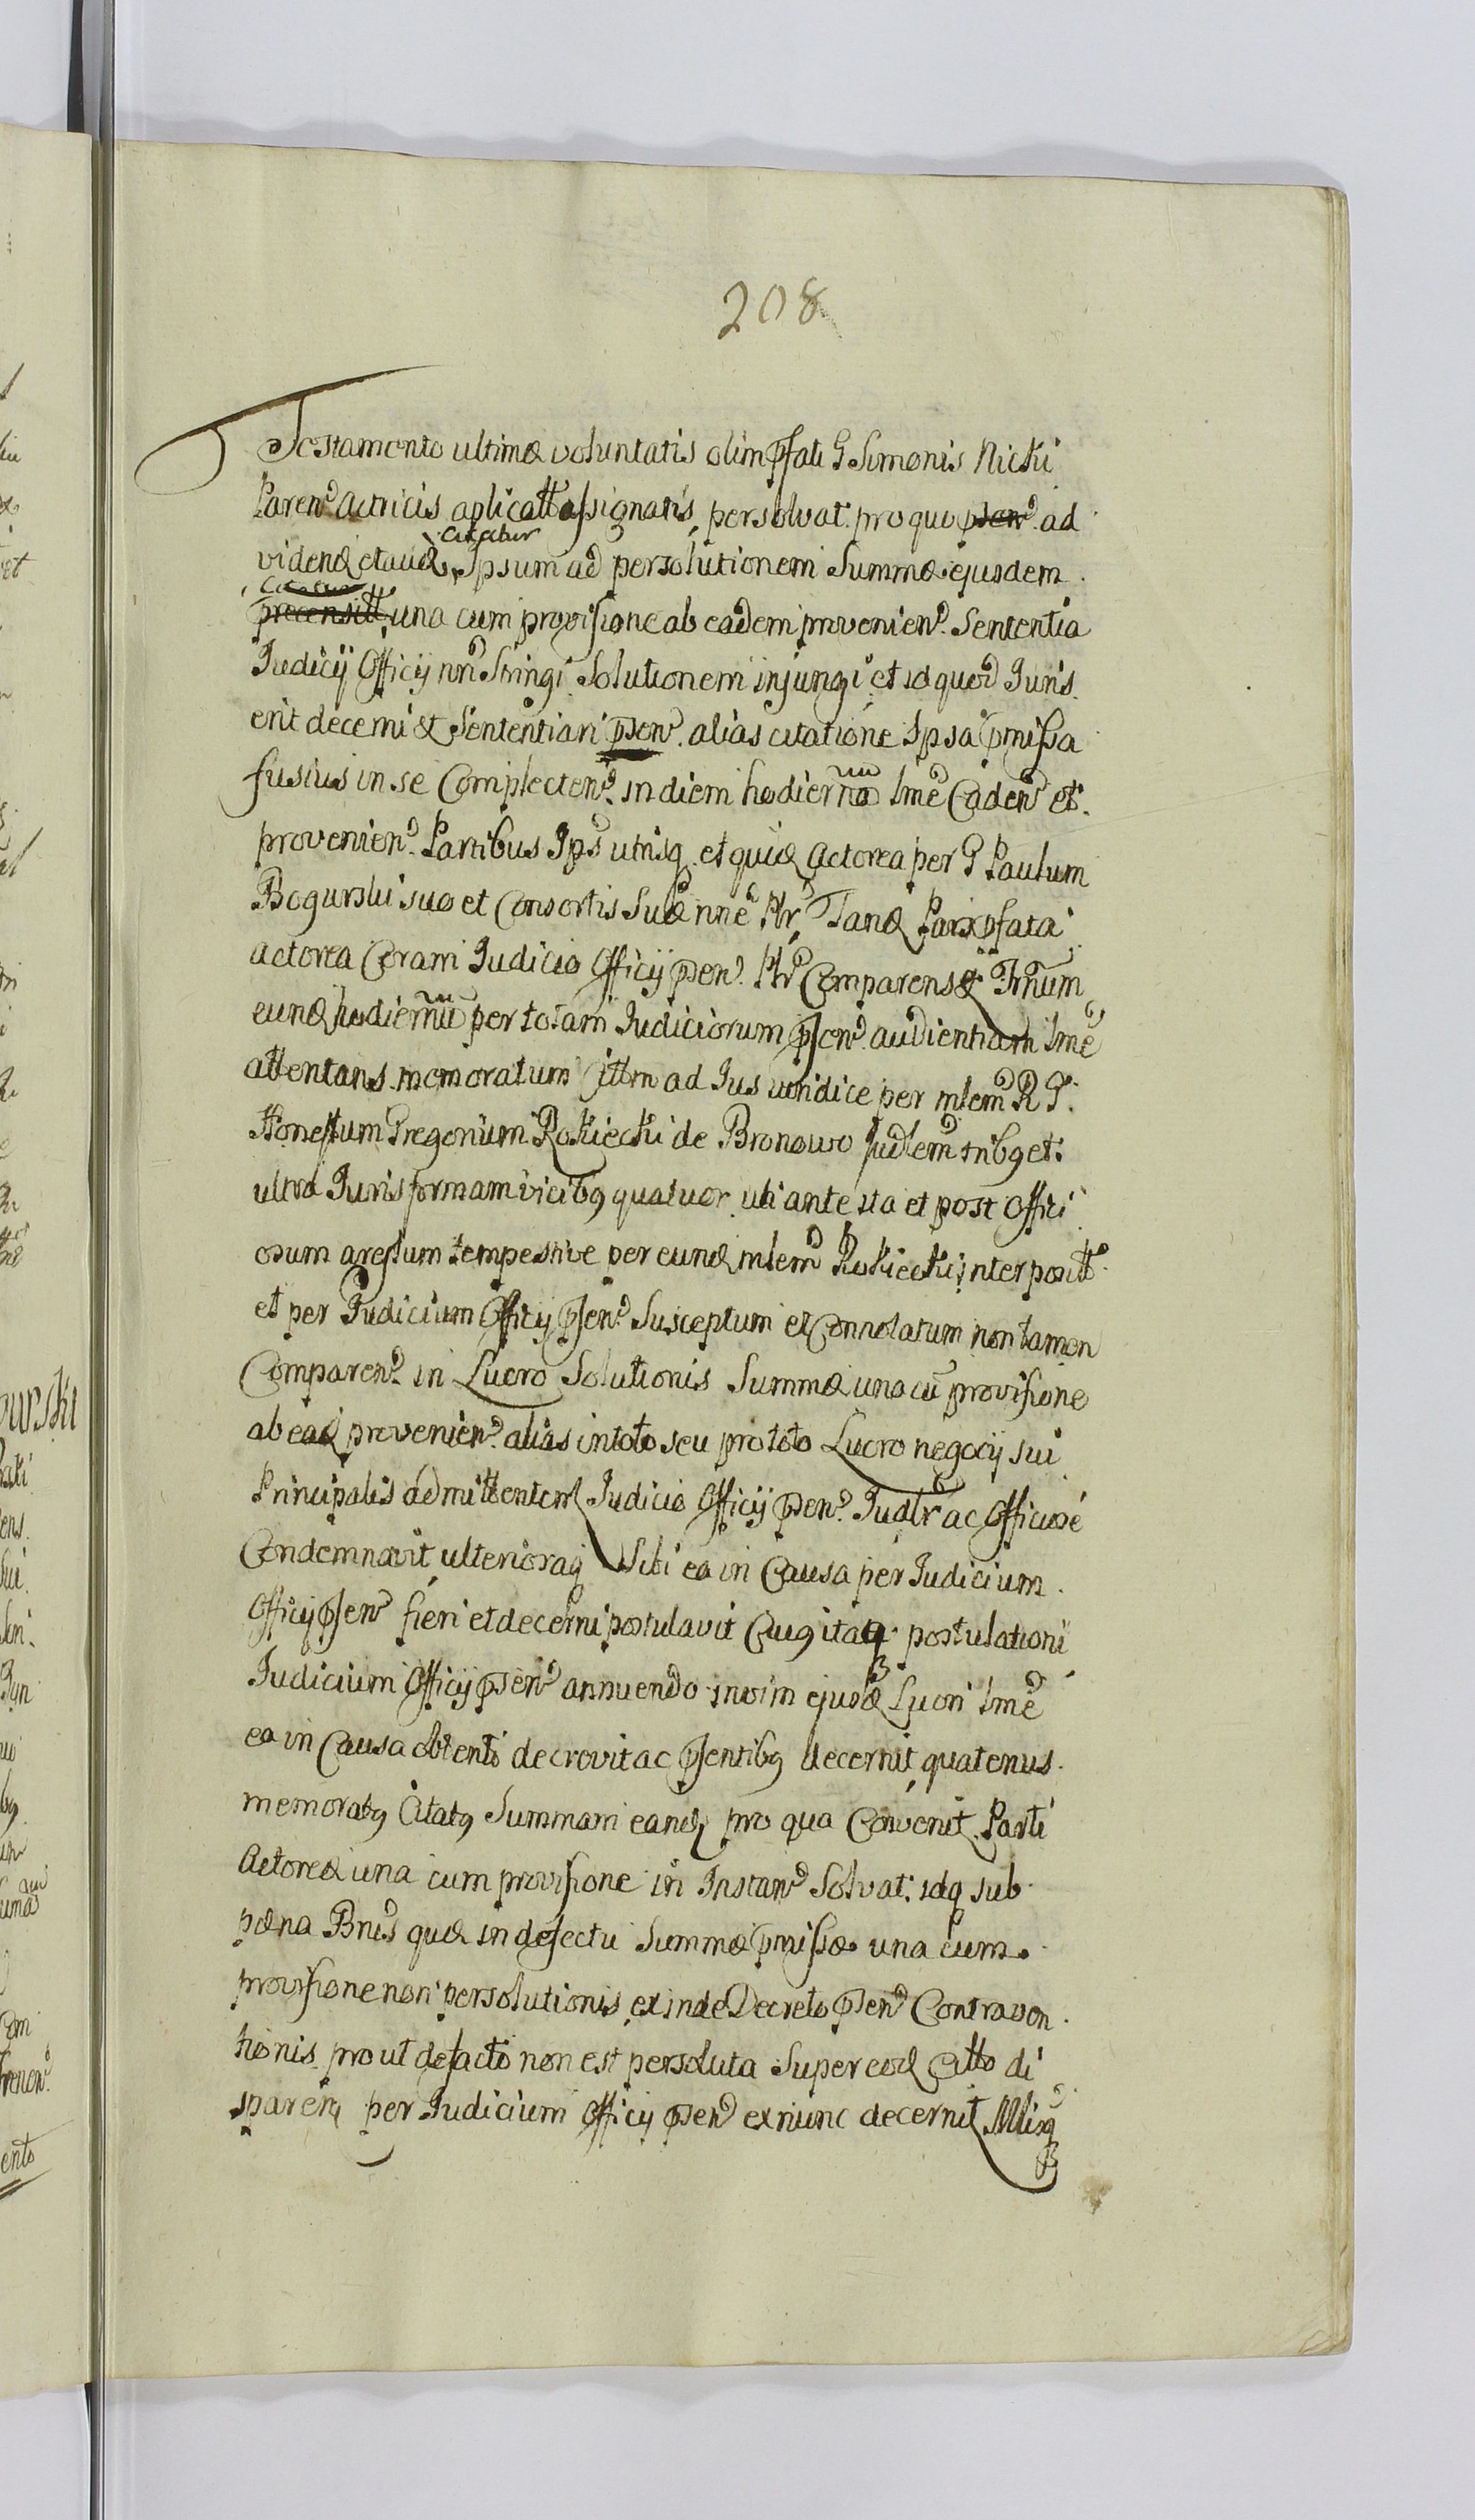 208
Testamento ultimæ voluntatis olim pfati G Simonis Nicki
Paren. Actricis aplicatt assignatis, persolvat. pro quo psen. ad
citatur
videnđ et auđ Ipsum ad persolutionem Summæ ejusdem
precensitt, una cum provisione ab eadem provenien. Sententia
Judicij Officij nri Stringi Solutionem injungi et id quod Juris
erit decerni et Sententiari psen. alias citatione Ipsa pmissa
fusius in se Complecten. in diem hodiernā tme Caden et
provenien. Partibus Ips utrisq et quidē Actorea per G Paulum
Bogurski suo et Consortis Suæ nne Ptr Tanq Pars pfata
actorea Coram Judicio Officij psen. Ptr Comparens et Trnum
eunđ hodiernū per totam Judiciorum psen. audientiam tme
attentans memoratum Cittm ad Jus vendice per mlem R G.
Honestum Gregorium Rokiecki de Bronowo Judlem tribg et
ultra Juris formam vicibg quatuor uti ante ita et post Offici
osum arestum tempestive per eunđ mlem Rokiecki interposit
et per Judicium Officij psen. Susceptum et Connotatum non tamen
Comparen. in Lucro Solutionis Summæ una cū provisione
ab eađ provenien. alias in toto seu pro toto Lucro negocij sui
Principalis admittentem Judicio Officij psen. Judlr ac Officiose
Condemnavit, ulterioraq Sibi ea in Causa per Judicium
Officij psen. fieri et decerni postulavit Cujg itaq postulationi
Judicium Officij psen. annuendo in vim ejusđ Lucri tme
ea in Causa obtenti decrevit ac psentibg decernit, quatenus
memoratg Citatg Summam eanđ pro qua Convenit Parti
Actoreæ una cum provisione in Instan. Solvat. idq sub
pœna Bnis quæ in defectu Summæ pmissæ una cum
provisione non persolutionis, exinde Decreto psen. Contraven
tionis prout de facto non est persoluta Super eođ Citto di
sparen per Judicium Officij psen. ex nunc decernit, Mlisq